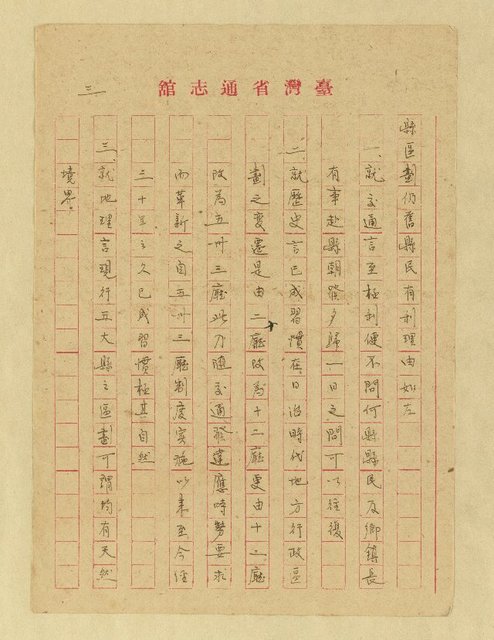 臺灣省通志館
三
縣區劃仍舊縣民有利理由如左
一、就交通言至極利便不問何縣縣民及鄉鎮長
有事赴縣朝發夕歸一日之間可以往復
二、就歷史言已成習慣在日治時代地方行政區
劃之變遷是由二廳改為十二廳更由十二廳
改為五卅三廳此乃隨交通發達應時勢要求
而革新之自五卅三廳制度實施以來至今經
二十年之久已成習慣極其自然
三、就地理言現行五大縣之區劃可謂均有天然
境界。